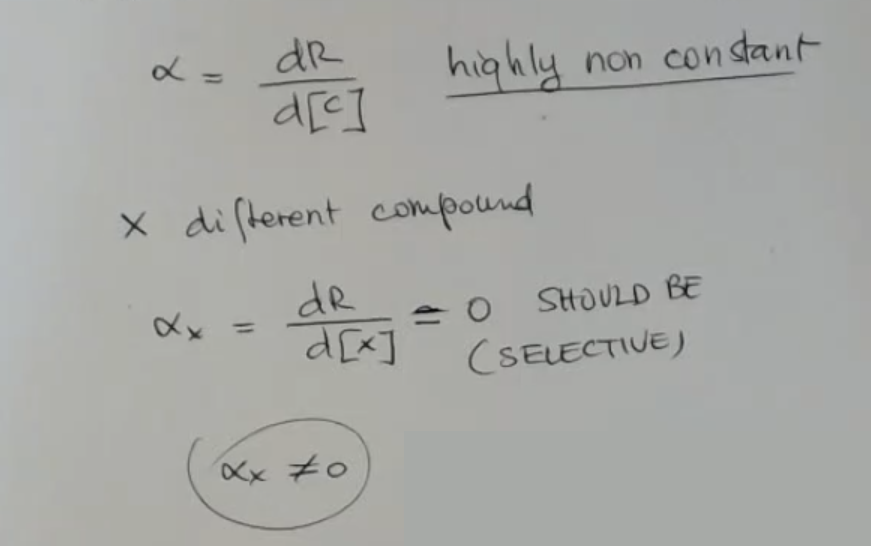 α = dR / d[c] highly non constant
x different compound
αx = dR / d[x] = 0 SHOULD BE
(SELECTIVE)
αx ≠ 0